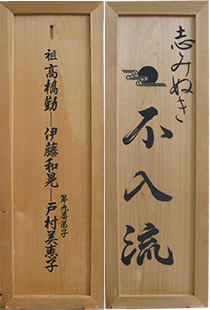 志みぬき
不入流
祖高橋勤―伊藤和晃―戸村美恵子
第九番弟子